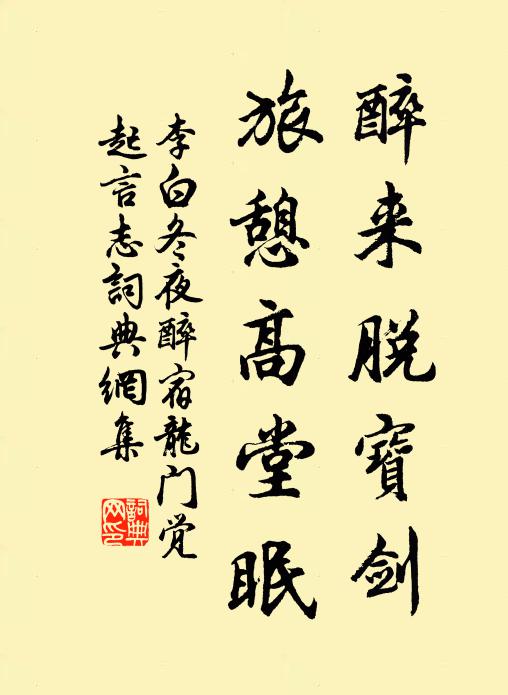 醉来脱寶劍
旅憩高堂眠
李白冬夜醉宿龍门觉
起言志詞典網集
詞典
网印